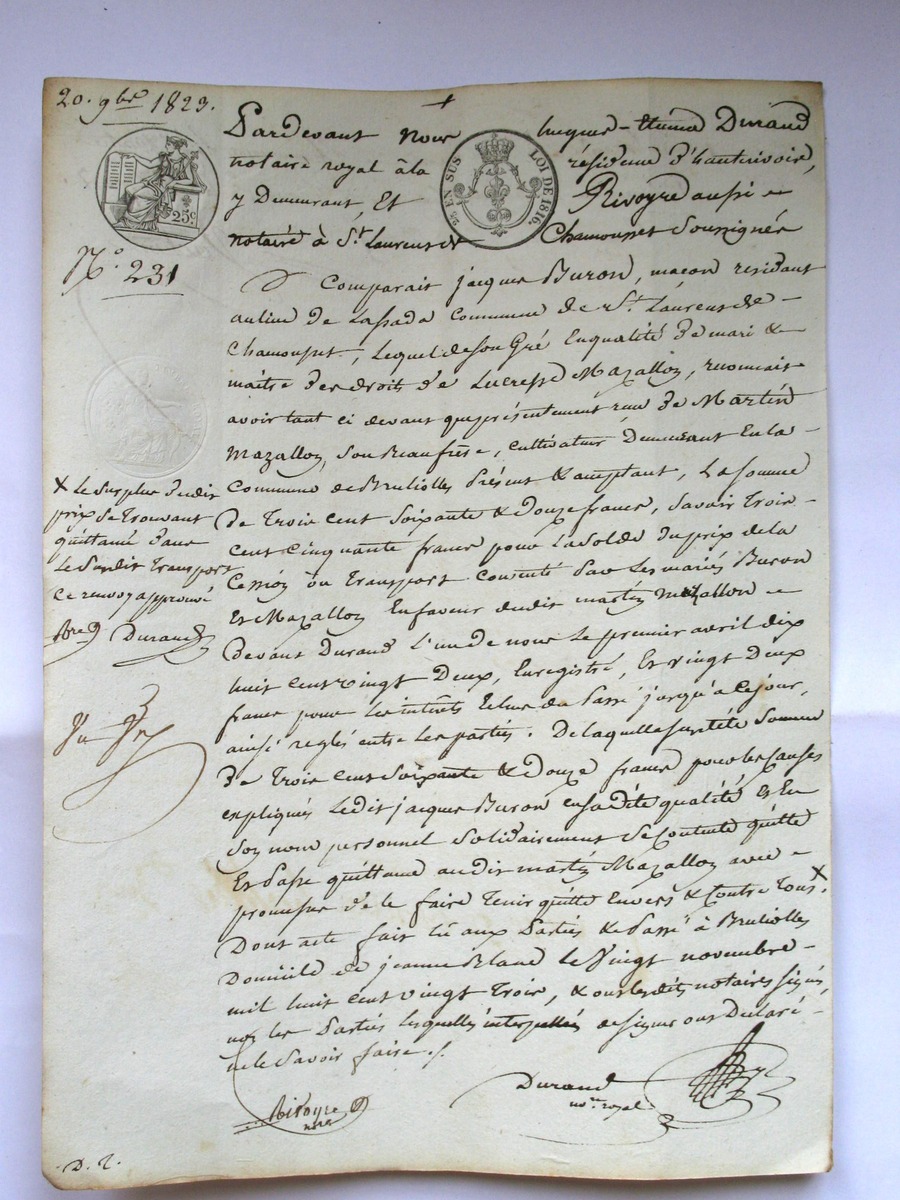 20. 9bre 1823.
Pardevant Nous hugues-Numa Durand
notaire royal à la résidence d'hauterivoire,
y Demeurant, Et Rivoyre aussi
notaire à St Laurens de Chamousset Soussignés
25c
EN SUS LOI DE 1816.
N.o 231
Comparait jacques Buron, maçon residant
au lieu de Lassada Commune de St Laurens de
Chamousset, Lequel de son Gré En qualité de mari &
maitre des droits de Lucresse Mazallon, reconnait
avoir tant ci devant que présentement reçu de Martin
Mazallon, Son Beaufrère, cultivateur demeurant En la
Commune de Brulioles Présent & acceptant, La somme
de Trois Cent Soixante & Douze francs, Savoir Trois
cent cinquante francs pour La Solde du prix de la
Cession ou Transport Consenti Par Les mariés Buron
Et Mazallon En faveur dudit martin Mazallon
devant Durand L'un de nous Le premier avril dix
huit cent vingt Deux, Enregistré, Et vingt Deux
francs pour Les intérêts Echus du Passé jusqu'à ce jour,
ainsi reglés entre Les parties. De laquelle susdite Somme
de Trois Cent Soixante & Douze francs pour les causes
expliqués Ledit jacques Buron en sa dite qualité Et En
Son nom personnel Solidairement Se Contente quitte
Et Passe quittance audit martin Mazallon avec
promesse de le faire Tenir quitte Envers & Contre Tous. X
Dont acte fait Lû aux Parties & Passé à Brulioles
Domicile de jeanne Blanc Le Vingt novembre
mil huit cent vingt Trois, & ont lesdits notaires signés,
non les Parties lesquelles interpellées de signer ont Déclaré
ne le Savoir faire ./.
X Le Surplus dudit
prix Se Trouvant
quittancé dans
Le Susdit Transport
Ce renvoy approuvé
Durand
Rivoyre
nre
Durand
nore royal
D. R.